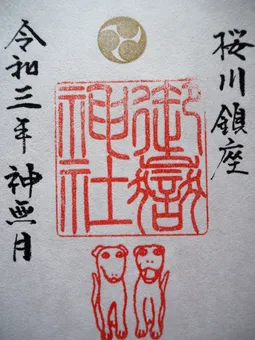 桜川鎮座
御嶽神社
令和三年 神無月